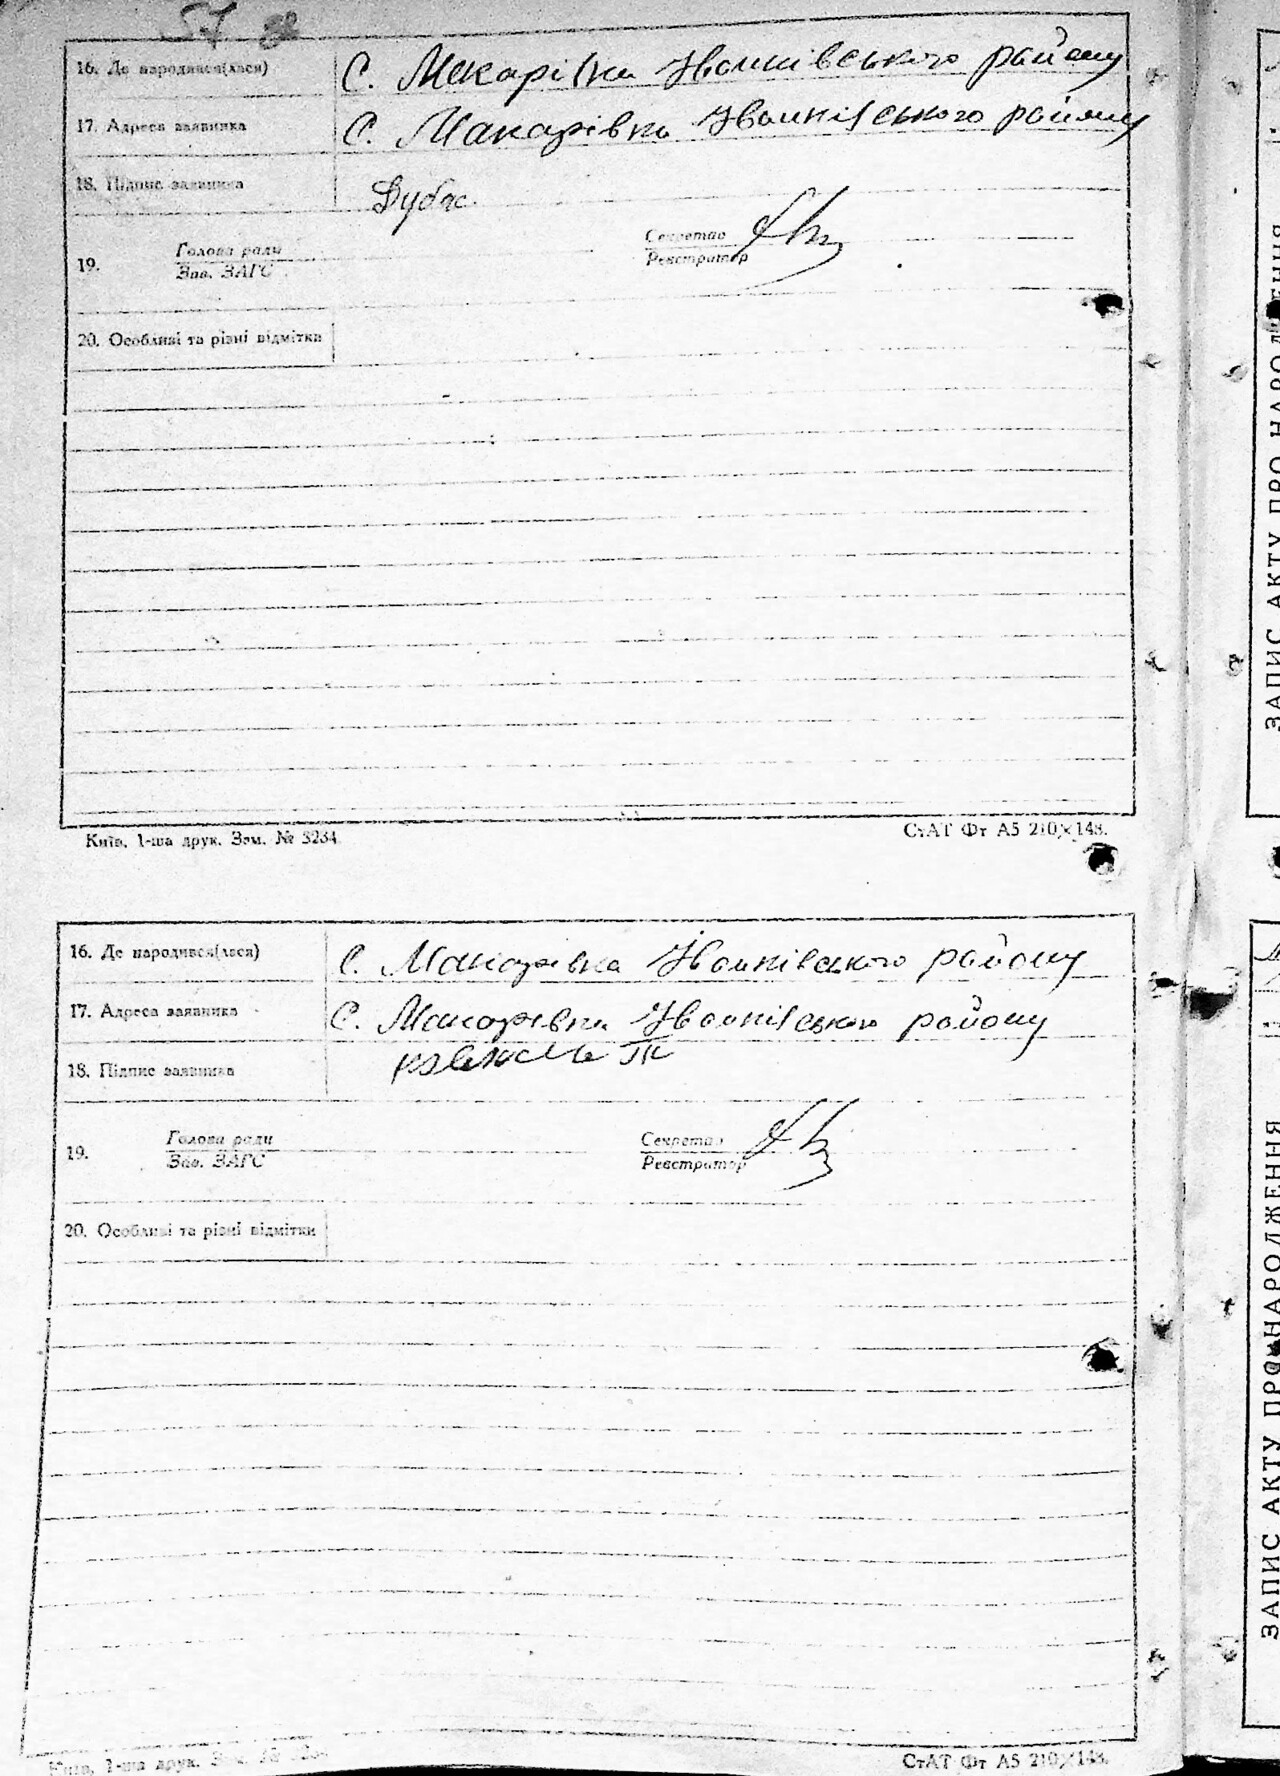 57
16. Де народився(лася) С. Макарівка Іванківського району
17. Адреса заявника С. Макарівка Іванківського району
18. Підпис заявника Дубас
19. Голова ради Секретар
Зав. ЗАГС Реєстратор
20. Особливі та різні відмітки
Київ, 1-ша друк. Зам. № 3234.
СтАТ Фт А5 210×148.
16. Де народився(лася) С. Макарівка Іванківського району
17. Адреса заявника С. Макарівка Іванківського району
18. Підпис заявника
19. Голова ради Секретар
Зав. ЗАГС Реєстратор
20. Особливі та різні відмітки
Київ, 1-ша друк. Зам. № 3234
СтАТ Фт А5 210×148.
ЗАПИС АКТУ ПРО НАРОДЖЕННЯ
ЗАПИС АКТУ ПРО НАРОДЖЕННЯ